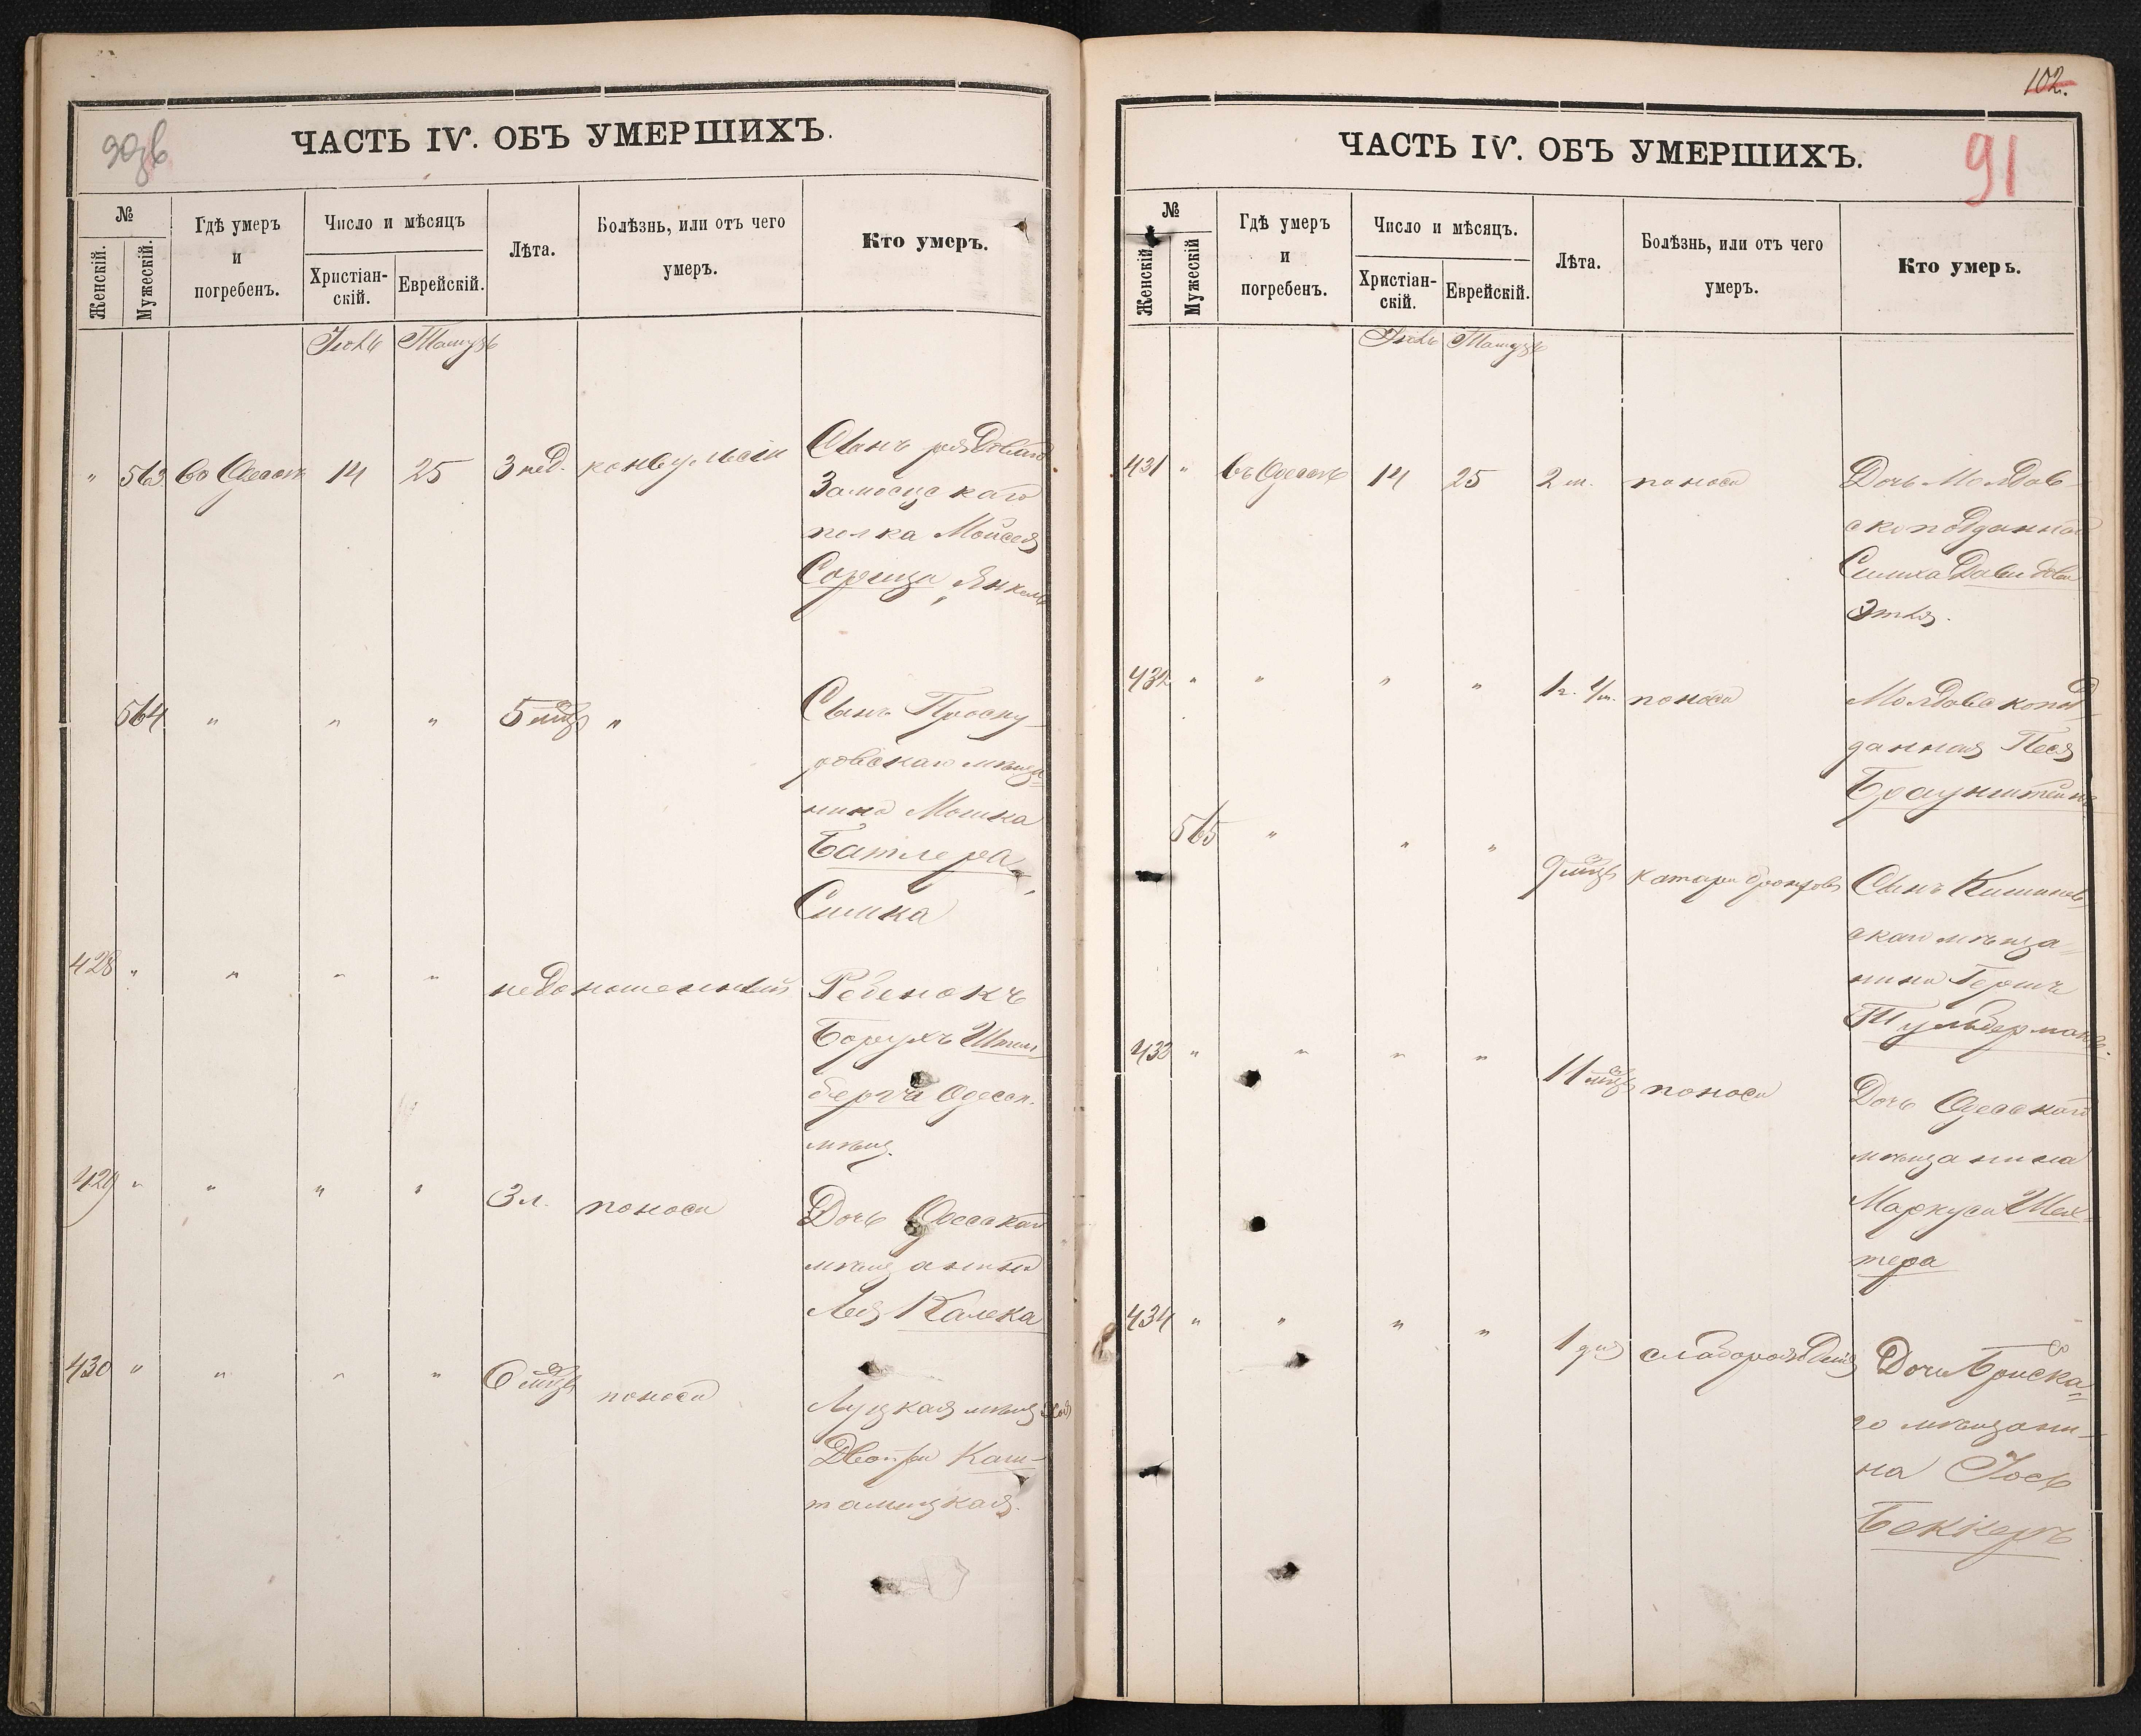 90об
ЧАСТЬ IV. ОБЪ УМЕРШИХЪ.
№
Женскій.
Мужескій.
Гдѣ умеръ
и
погребенъ.
Число и мѣсяцъ
Христіан-
скій.
Еврейскій.
Лѣта.
Болѣзнь, или отъ чего
умеръ.
Кто умеръ.
Іюль Тамузъ
" 563 во Одессѣ 14 25 3 нед. конвульсіи Сынъ рядового
Замосцскаго
полка Мойсея
Янкель
564 " " " 5 мѣс "
Сынъ Проску-
ровскаго мѣща-
нина Мошка
Батлера,
Симха
428 " " " " недоношенный Ребенокъ
Борухъ Штейн-
берга Одесск.
мѣщ.
429 " " " " 3 л. поноса Дочь Одесскаго
мѣщанина
Лея Калека
430 " " " " 6 мѣс поноса
Луцкая мѣщ
Двойра Каш-
талицкая.
102.
ЧАСТЬ IV. ОБЪ УМЕРШИХЪ.
91
№
Женскій.
Мужескій
Гдѣ умеръ
и
погребенъ.
Число и мѣсяцъ.
Христіан-
скій.
Еврейскій.
Лѣта.
Болѣзнь, или отъ чего
умеръ.
Кто умеръ.
Іюль Тамузъ
431 " въ Одессѣ 14 25 2 м. поноса Дочь Молдав-
скоподданнаго
Симха Давидова
Этля.
432 " " " " 1 г. 4 м. поноса Молдавскопод-
данная Песя
Браунштейнъ
565 " " "
9 мѣс катара бронховъ Сынъ Кишинев-
скаго мѣща-
нина Гершъ
Тульберманъ.
433 " " " " 11 мѣс поноса
Дочь Одесскаго
мѣщанина
Маркуса Шех-
тера
434 " " " " 1 дня слаборожденія
Дочь Бриска-
го мѣщани-
на Іось
Беккеръ